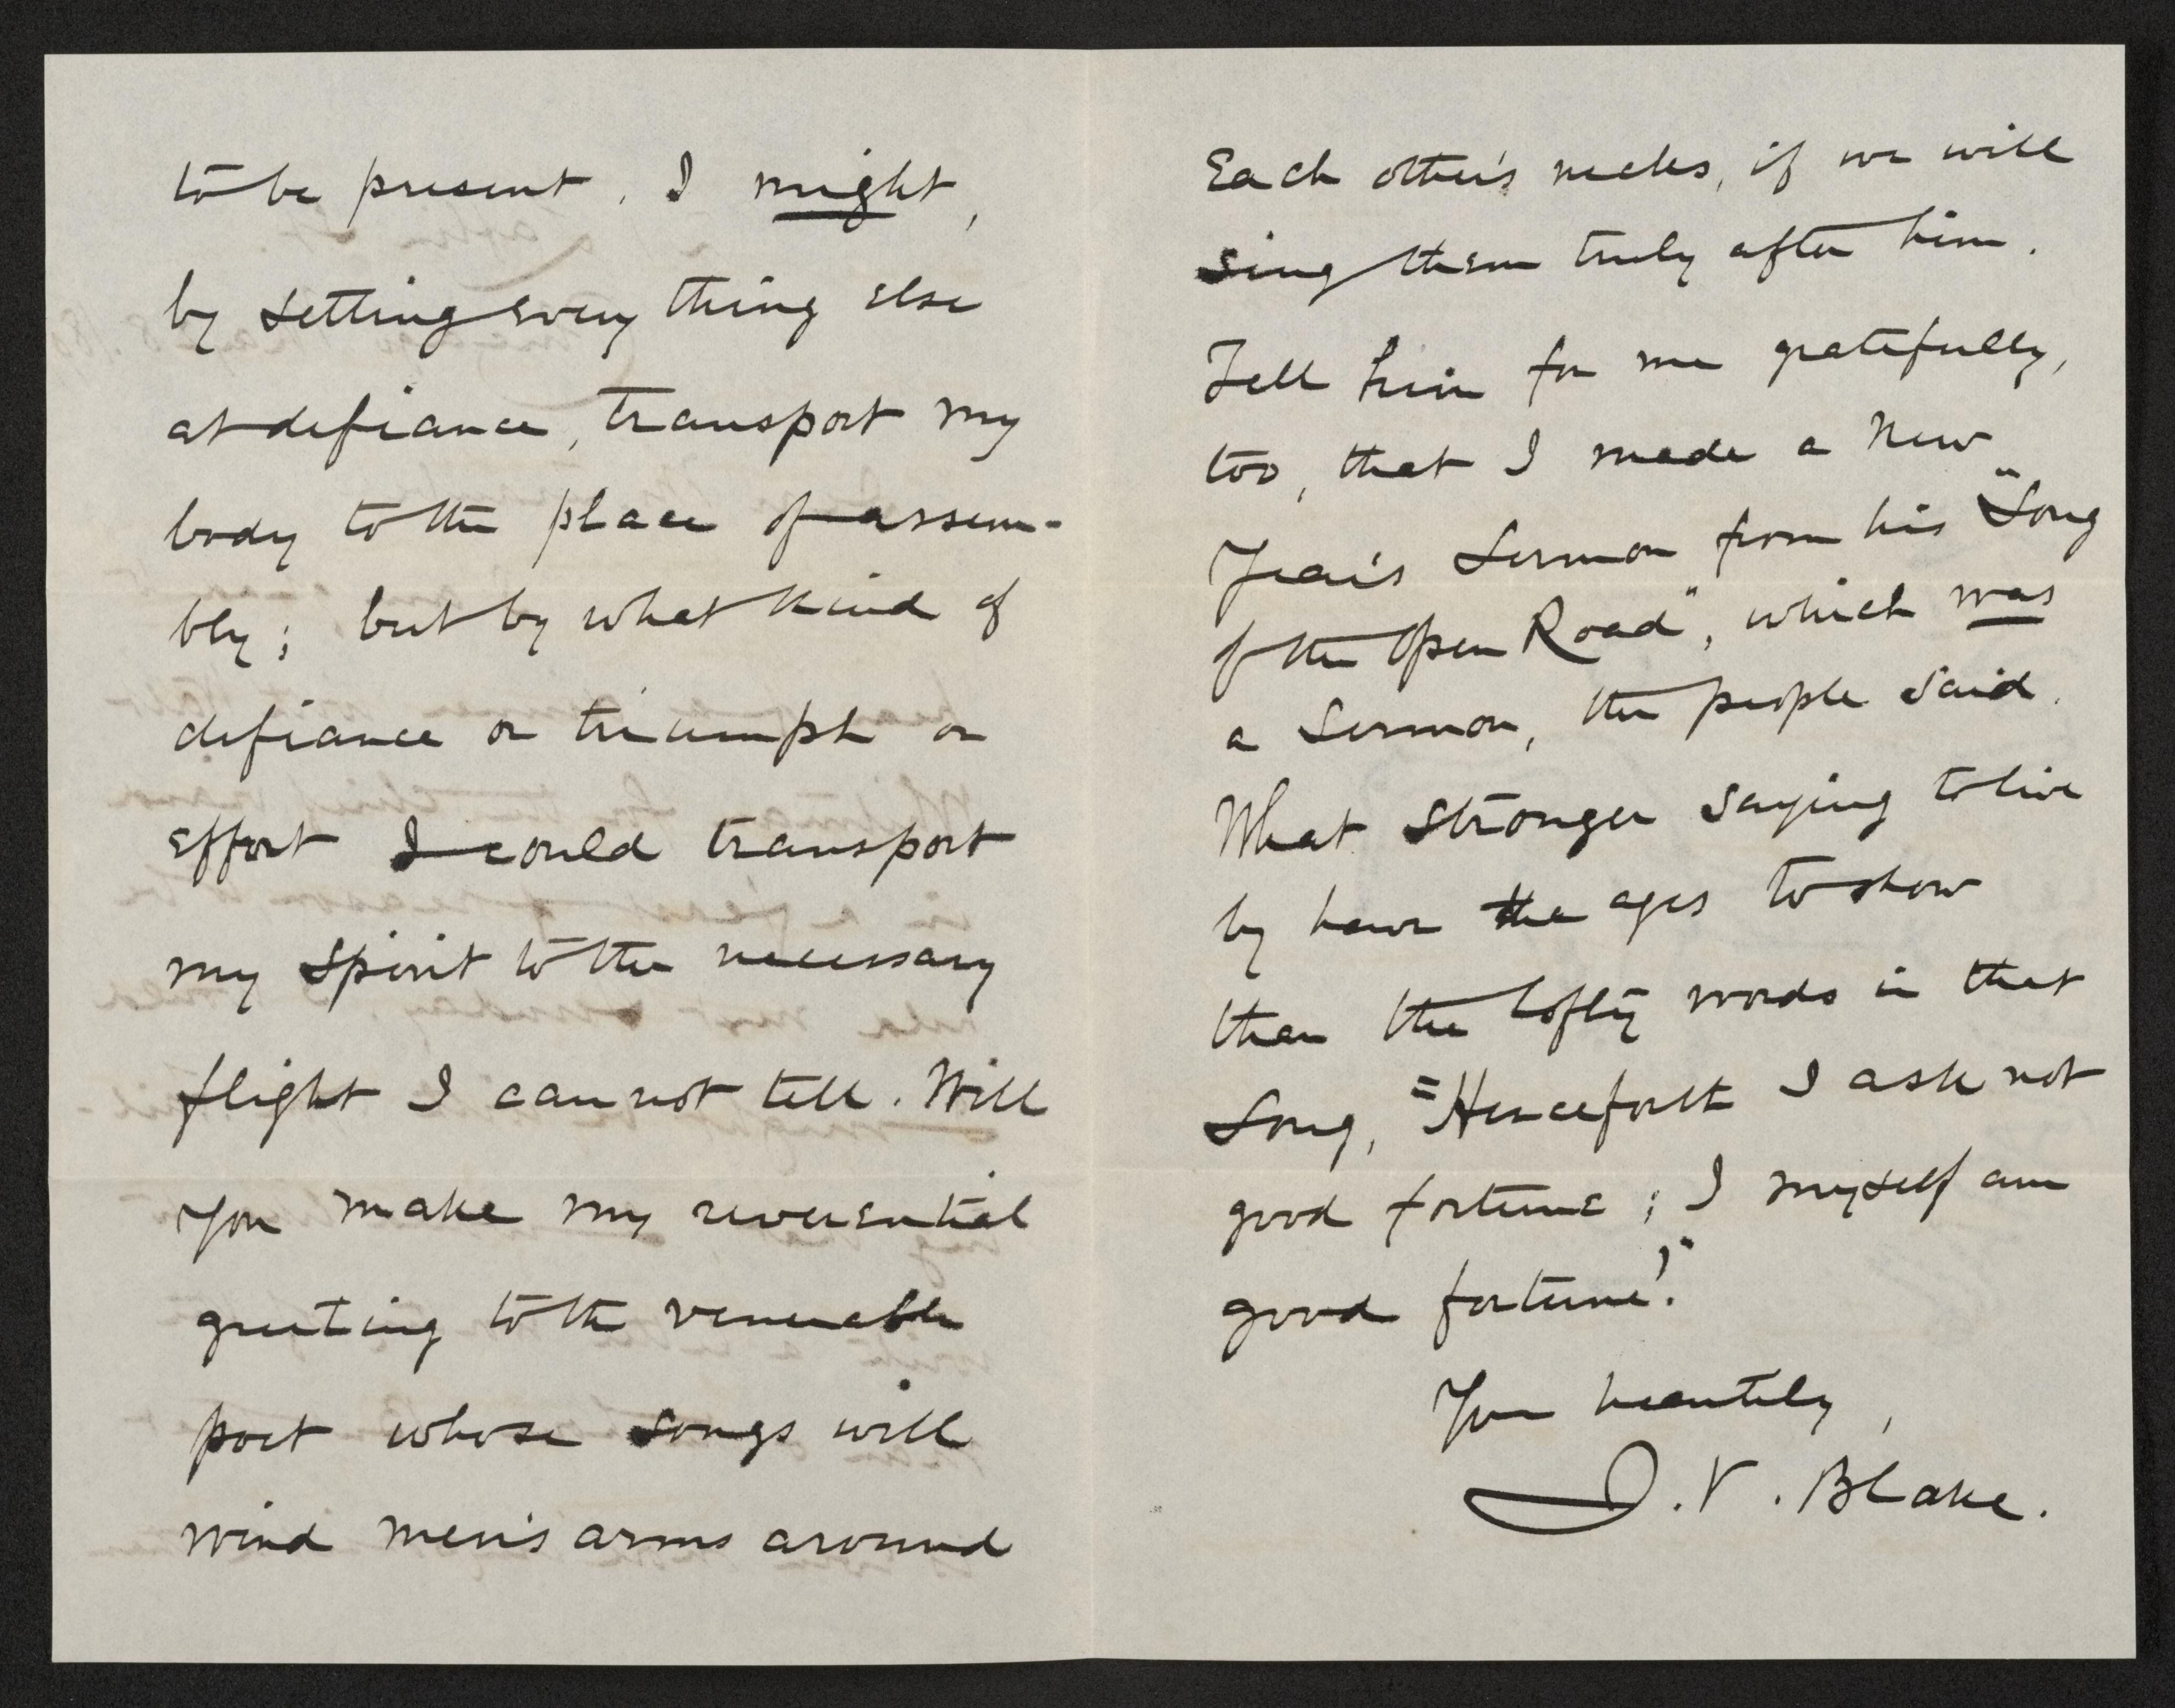 to be present. I might,
by setting every thing else
at defiance, transport my
body to the place of assem-
bly; but by what kind of
defiance or triumph or
effort I could transport
my spirit to the necessary
flight I can not tell. Will
you make my reverential
greeting to the venerable
poet whose songs will
wind men's arms around
Each other's necks, if we will
sing them truly after him.
Tell him for me gratefully,
too, that I made a New
Year's Sermon from his "Song
of the Open Road", which was
a Sermon, the people said.
What stronger saying to live
by have the ages to show
than the lofty words in that
Song, "Henceforth I ask not
good fortune; I myself am
good fortune!"
Your heartily,
J. V. Blake.